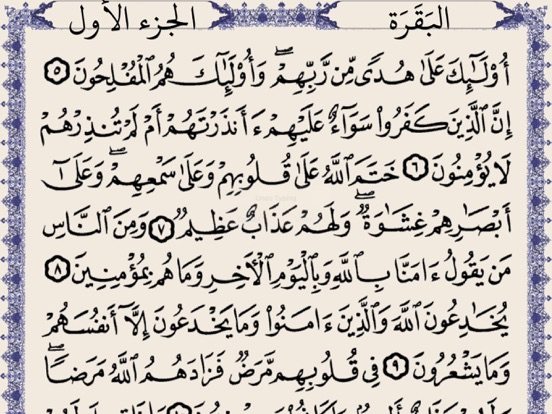 البَقَرَة
الجزء الأول
أُوْلَٰٓئِكَ عَلَىٰ هُدًى مِّن رَّبِّهِمْۖ وَأُوْلَٰٓئِكَ هُمُ ٱلْمُفْلِحُونَ ٥
إِنَّ ٱلَّذِينَ كَفَرُواْ سَوَآءٌ عَلَيْهِمْ ءَأَنذَرْتَهُمْ أَمْ لَمْ تُنذِرْهُمْ
لَا يُؤْمِنُونَ ٦ خَتَمَ ٱللَّهُ عَلَىٰ قُلُوبِهِمْ وَعَلَىٰ سَمْعِهِمْۖ وَعَلَىٰٓ
أَبْصَٰرِهِمْ غِشَٰوَةٌۖ وَلَهُمْ عَذَابٌ عَظِيمٌ ٧ وَمِنَ ٱلنَّاسِ
مَن يَقُولُ ءَامَنَّا بِٱللَّهِ وَبِٱلْيَوْمِ ٱلْأٓخِرِ وَمَا هُم بِمُؤْمِنِينَ ٨
يُخَٰدِعُونَ ٱللَّهَ وَٱلَّذِينَ ءَامَنُواْ وَمَا يَخْدَعُونَ إِلَّآ أَنفُسَهُمْ
وَمَا يَشْعُرُونَ ٩ فِى قُلُوبِهِم مَّرَضٌ فَزَادَهُمُ ٱللَّهُ مَرَضًاۖ